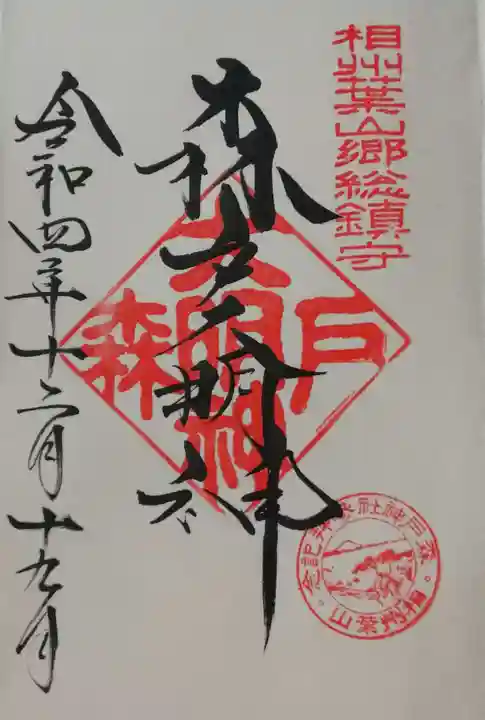 相州葉山郷総鎮守
森戸大明神
森戸大明神
令和四年十二月十九日
森戸神社参拝記念
相州葉山